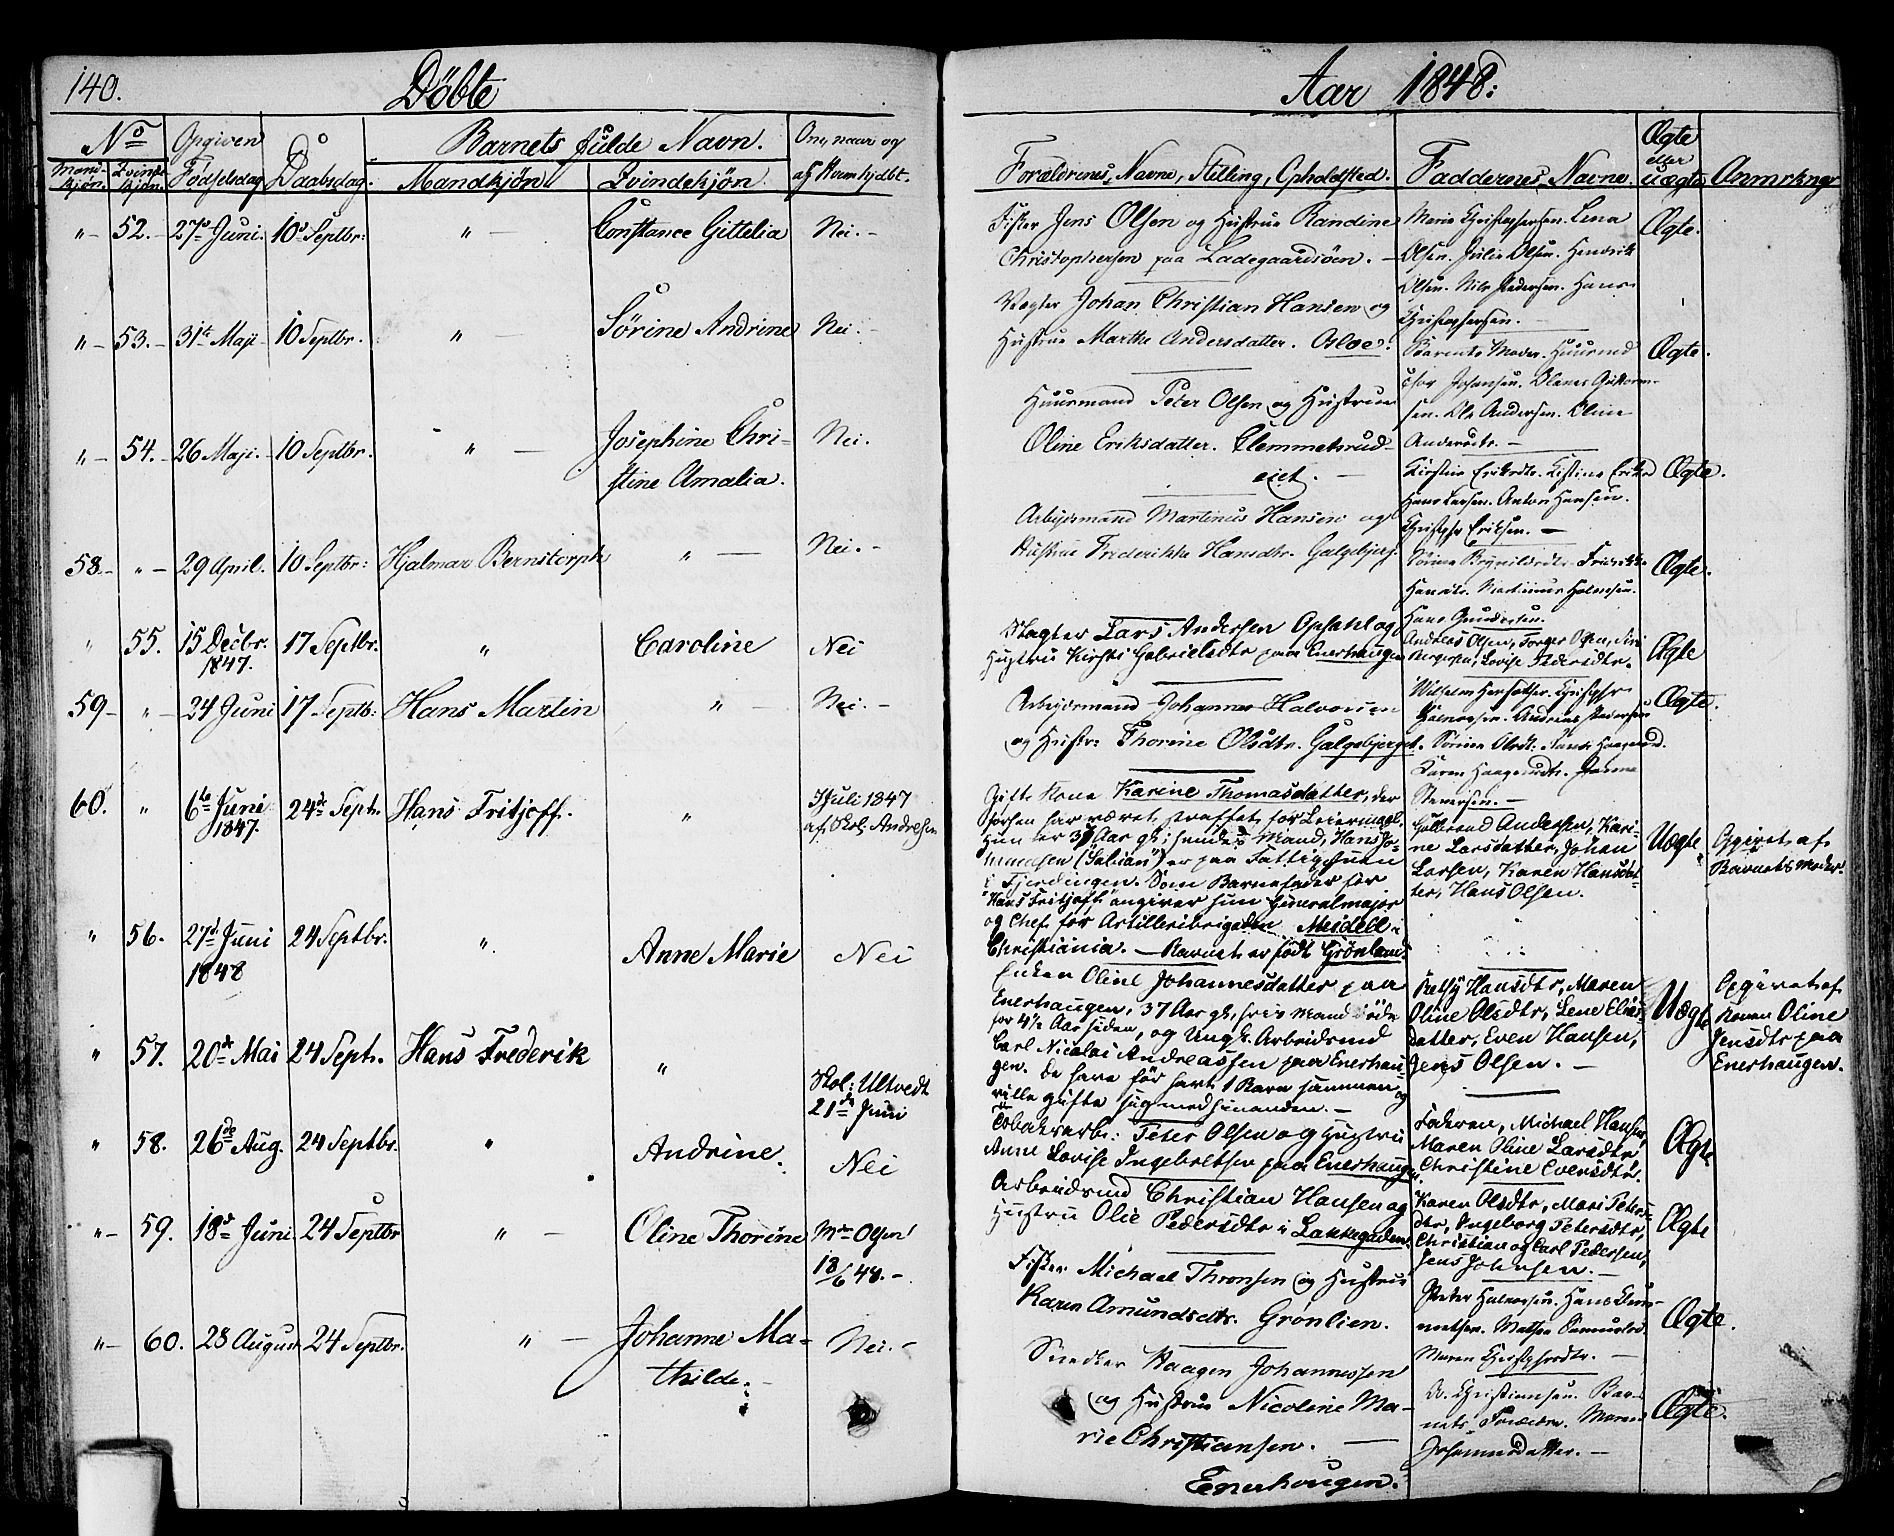 140.
Döbte
Aar 1848:
No
Opgiven
Fødselsdag
Daabsdag.
Barnets fulde Navn.
Om, naar og
af Hvem hjdbt.
Mandkjøn.
Qvindekjøn
Mandkjøn
Qvindekjøn
Forældrenes Navne, Stilling, Opholdsted.
Faddernes Navne.
Ægte
eller
Uægte
Anmrkngr
" 52. 27de Juni. 10d Septbr: " — Constance Gittelia Nei. -
Fisker Jens Olsen og Hustrue Randine
Christophersen paa Ladegaardsöen. -
Maria Christophersen. Lena
Olsen. Julie Olsen. Hendrik
Olsen. Nils Pedersen. Hans
Christophersen. -
Ægte.
" - 53. - 31te Maji - 10 Septbr. " — Sörine Andrine Nei. -
Vægter Johan Christian Hansen og
Hustrue Marthe Andersdatter. Osloe.
Barnets Moder. Huusmd
Johansen.
sen. Ole Andersen. Oline
Andersdtr. -
Ægte.
" - 54. - 26 Maji. - 10 Septbr. " — Josephine Chri-
stine Amalia. Nei.
Huusmand Peter Olsen og Hustrue
Oline Eriksdatter. Clemmetsrud-
eiet. -
Kirstine Eriksdtr.
Hans Larsen. Anton Hansen.
Eriksen. -
Ægte.
58. - " - 29 April. 10 Septbr: Hjalmar Bernstorph " — Nei. -
Arbejdsmand Martinus Hansen og
Hustrue Frederikke Hansdtr. Galgebjerg.
Hansdtr. Martinus Halvorsen.
Hans Gundersen.
Ægte.
" 55. 15 Decbr. 17 Septbr. " Caroline Nei
1847.
Slagter Lars Andersen Opsahl og
Hustru Kirsti Gabrielsdtr paa Enerhaugen
Andreas Olsen, Torger Olsen, Siri
Bergersen, Lovise Pedersdtr.
Ægte
59 - " - 24 Juni 17 Septb: Hans Martin " — Nei. -
Arbejdsmand Johannes Halvorsen
og Hustr: Thorine Olsdtr. Galgebjerget.
Halvorsen. Andreas Pedersen
Karen Haagensdtr.
Steversen. -
Ægte.
60. " 6te Juni 24de Septr. Hans Fritjoff. "
1847.
7 Juli 1847
af Skol: Andresen
Gifte Kone Karine Thomasdatter, der
forhen har været straffet for Leiermaal.
Hun er 37 Aar gl; hendes Mand, Hans Jo-
nnesen ("Salian") er paa Fattigstuen
i Fjerdingen. Som Barnefader for
"Hans Fritjoff" angiver hun Generalmajor
og Chef for Artilleribrigaden Meidell i
Christiania. — Barnet er födt Grönland.
Gulbrand Andersen, Kari-
ne Larsdatter, Johan
Larsen, Karen Hansdat-
ter, Hans Olsen.
Uægte
Opgivet af
Barnets Moder.
" 56. 27d Juni 24 Septbr. " Anne Marie Nei
1848
Enken Oline Johannesdatter paa
Enerhaugen, 37 Aar gl, hvis Mand døde
for 4½ Aar siden, og Ungk. Arbeidsmd
Carl Nicolai Andreassen paa Enerhau-
gen. De have för havt 1 Barn sammen og
ville gifte sig med hinanden. -
Bethy Hansdtr, Maren
Oline Olsdtr, Lene Elias-
datter, Even Hansen,
Jens Olsen. -
Uægte
Opgivet af
Konen Oline
Jensdtr paa
Enerhaugen.
" 57. 20de Mai 24 Septr. Hans Frederik "
Skol: Ultvedt
21de Juni
Tobaksarb: Peter Olsen og Hustru
Anne Lovise Ingebretsen paa Enerhaugen
Faderen, Michael Hansen,
Maren Oline Larsdtr,
Christine Evensdtr.
Ægte
" 58. 26de Aug. 24 Septbr. " Andrine. Nei
Arbeidsmd Christian Hansen og
Hustru Olie Pedersdtr i Lakkegaden.
Karen Olsdtr, Mari Peters-
dtr, Ingeborg Petersdtr,
Christian og Carl Pedersen,
Jens Johnsen. -
Ægte
" - 59. 18d Juni 24 Septbr " - Oline Thorine Md Olsen
18/6 48. -
Fisker Michael Thronsen og Hustrue
Karen Amundsdtr. Grönlien.
Peder Halvorsen. Hans Clem-
metsen.
Maren Christophersdtr. -
Ægte.
" - 60. 28 August 24 Septbr. " — Johanne Ma-
thilde. - Nei. -
Snedker Haagen Johannessen
og Hustrue Nicoline Ma-
rie Christiansen. —
Enerhougen.
Christiansen. Bar-
nets Forældre. Maren
Johannesdatter. -
Ægte.